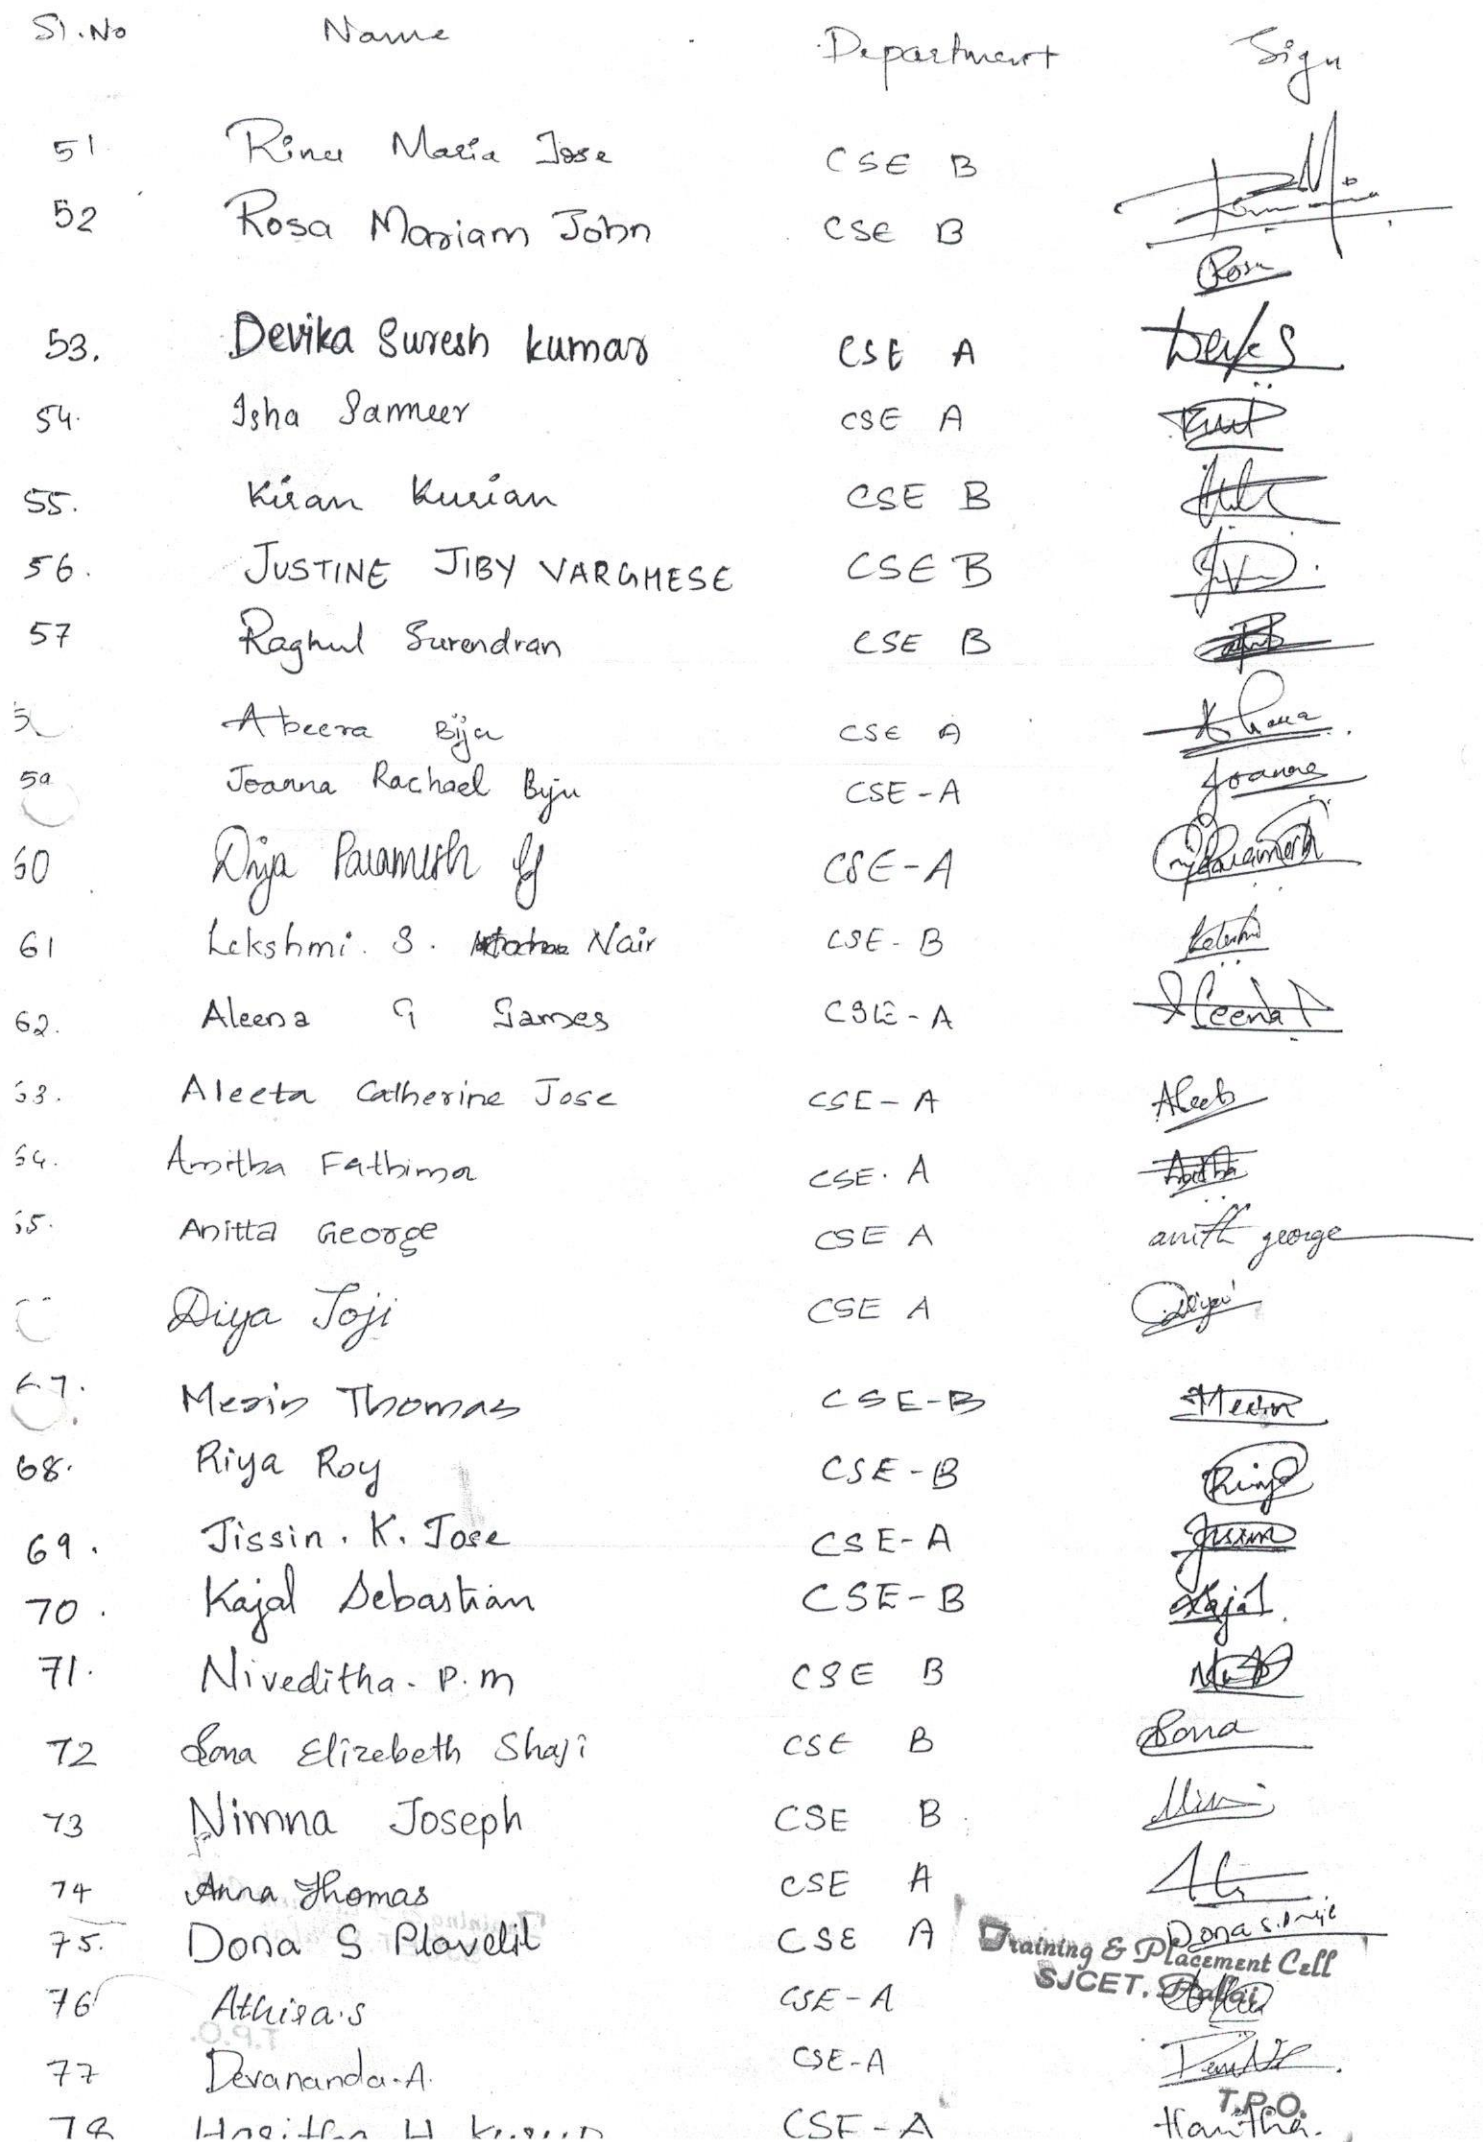 Sl.No Name Department Sign
51 Rinu Maria Jose CSE B
52 Rosa Mariam John CSE B Rosa
53. Devika Suresh kumar CSE A
54. Isha Sameer CSE A
55. Kiran Kurian CSE B
56. JUSTINE JIBY VARGHESE CSE B
57 Raghul Surendran CSE B
5 Abeera Biju CSE A
59 Joanna Rachael Biju CSE-A Joanna
60 Diya Paramesh CSE-A Paramesh
61 Lekshmi. S. Nair CSE-B
62. Aleena G James CSE-A Aleena
63. Aleeta Catherine Jose CSE-A Aleeta
64. Amitha Fathima CSE. A
65. Anitta George CSE A anitta george
Diya Joji CSE A Diya
67. Merin Thomas CSE-B Merin
68. Riya Roy CSE-B Riya
69. Jissin. K. Jose CSE-A Jissin
70. Kajal Sebastian CSE-B Kajal
71. Niveditha. P.m CSE B
72 Sona Elizebeth Shaji CSE B Sona
73 Nimna Joseph CSE B
74 Anna Thomas CSE A
75. Dona S Plavelil CSE A Dona S.
Training & Placement Cell
SJCET, Pallai
76 Athira.S CSE-A
77 Devananda.A. CSE-A
T.P.O.
78 H CSE-A Haritha.